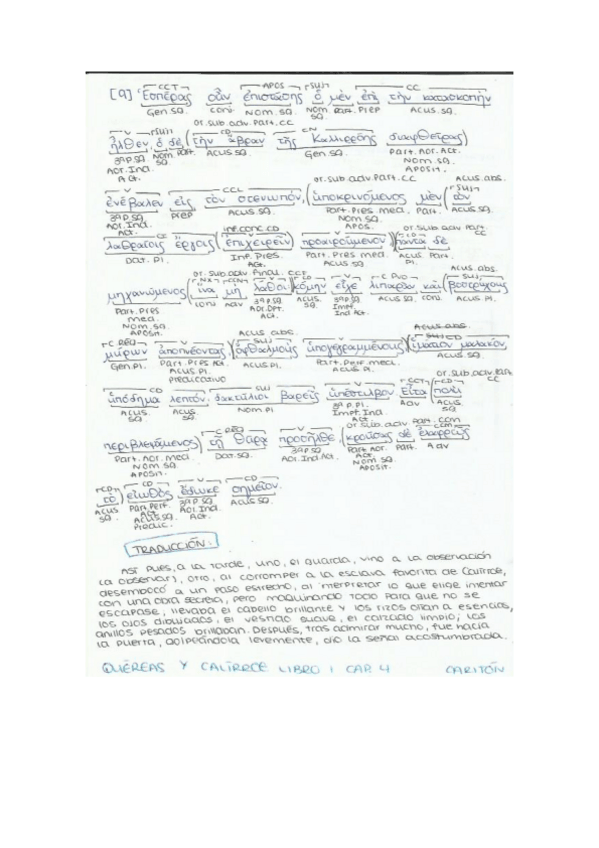 CCT APOS SUJ CC
[9] Ἑσπέρας οὖν ἐπιστάσης ὁ μὲν ἐπὶ τὴν κατασκοπὴν
Gen.sg. conj. Nom.sg. Nom. sg. Part. Prep Acus.sg
or.sub.adv.Part.CC
V SUJ CD CN
ἦλθεν, ὁ δὲ (τὴν ἅβραν τῆς Καλιρρόης διαφθείρας)
3ªp.sg Nom. Part. Acus.sg Gen.sg Part. Aor. Act.
Aor.Ind. sg. Nom.sg.
Act. Aposit.
or.sub.adv.Part.CC Acus.abs.
V CCL V SUJ
ἐνέβαλεν εἰς τὸν στενωπόν, (ὑποκρινόμενος μὲν (τὸν
3ªp.sg Prep Acus.sg Part.Pres med. Part. Acus.sg
Aor.Ind. Nom sg
Act. Apos.
CC inf.conc.CD V or.sub adv Part. CC
λαθραίοις ἔργοις (ἐπιχειρεῖν) προαιρούμενον) (πάντα δὲ
Dat. Pl. Inf. Pres. Part. Pres med. Acus Part.
Act. Acus sg Pl.
or.sub.adv.Final.CCF Acus.abs.
V V CD V C Pvo SUJ
μηχανώμενος (ἵνα μὴ λάθοι) κόμην εἶχε λιπαρὰν καὶ (βοστρύχους
Part. Pres conj adv 3ªp.sg Acus. 3ªp.sg Acus sg conj. Acus Pl.
med. Aor.Opt. sg. Impf.
Nom.sg. Act. Ind Act
Aposit.
C.Rég V Acus abs. SUJ V Acus abs.
μύρων ἀποπνέοντας) (ὀφθαλμοὺς ὑπογεγραμμένους) (ἱμάτιον μαλακόν,
Gen.Pl. Part. Pres Act. Acus.Pl. Part.Perf.med. Acus.sg.
Acus Pl. Acus.Pl.
Predicativo
CD SUJ V CCT CD or.sub.adv.Part. CC
ὑπόδημα λεπτόν, δακτύλιοι βαρεῖς ὑπέστιλβον. Εἶτα (πολὺ
Acus. Acus. Nom Pl 3ªp.Pl. Adv Acus.
sg sg. Impf.Ind. sg.
Act
V C.Rég V or.sub.adv Part. CCM
περιβλεψάμενος) τῇ θύρᾳ προσῆλθε, (κρούσας δὲ ἐλαφρῶς
Part. Aor. med Dat.sg. 3ªp.sg Part Aor. Part. Adv
Nom sg Aor.Ind.Act Act
Aposit. Nom sg
Aposit.
CD V CD
τὸ) εἰωθὸς ἔδωκε σημεῖον.
Acus Part.Perf. 3ªp.sg Acus.sg
sg. Act Aor.Ind.
Acus.sg. Act.
Predic.
TRADUCCIÓN:
Así pues, a la tarde, uno, el guardia, vino a la observación
(a observar), otro, al corromper a la esclava favorita de Calírroe,
desembocó a un paso estrecho, al interpretar lo que elige intentar
con una obra secreta, pero maquinando todo para que no se
escapase, llevaba el cabello brillante y los rizos olían a esencias,
los ojos dibujados, el vestido suave, el calzado limpio; los
anillos pesados brillaban. Después, tras admirar mucho, fue hacia
la puerta, golpeándola levemente, dio la señal acostumbrada.
QUÉREAS Y CALÍRROE LIBRO 1 CAP. 4 CARITÓN